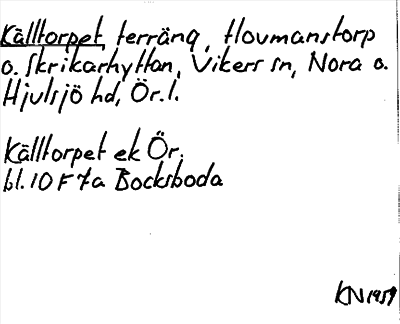 Källtorpet, terräng, Hovmanstorp
o. Skrikarhyttan, Vikers sn, Nora o.
Hjulsjö hd, Ör. l.
Källtorpet ek Ör.
bl. 10 F 7a Bocksboda
KN 1951